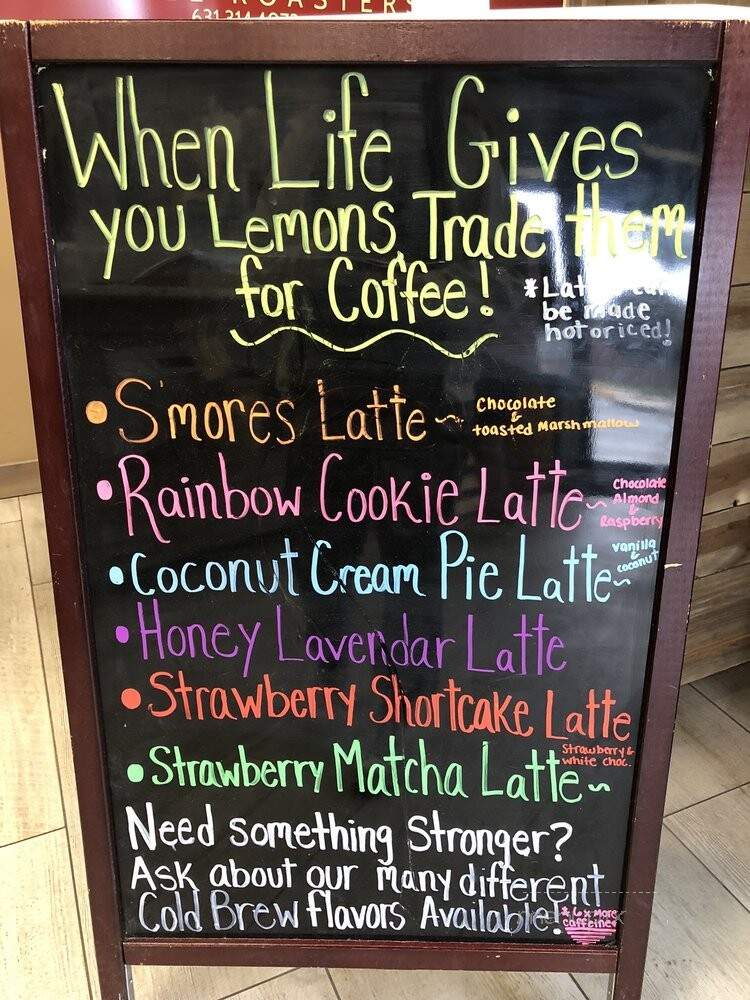 ROASTERS
When Life Gives
you Lemons, Trade them
for Coffee!
*Lattes can
be made
hot or iced!
• S'mores Latte ~ Chocolate
&
toasted Marshmallow
• Rainbow Cookie Latte ~ Chocolate
Almond
&
Raspberry
• Coconut Cream Pie Latte ~ vanilla
&
coconut
• Honey Lavendar Latte
• Strawberry Shortcake Latte
Strawberry &
white choc.
• Strawberry Matcha Latte ~
Need something Stronger?
Ask about our many different
Cold Brew flavors Available!
* 6x more
caffeine*